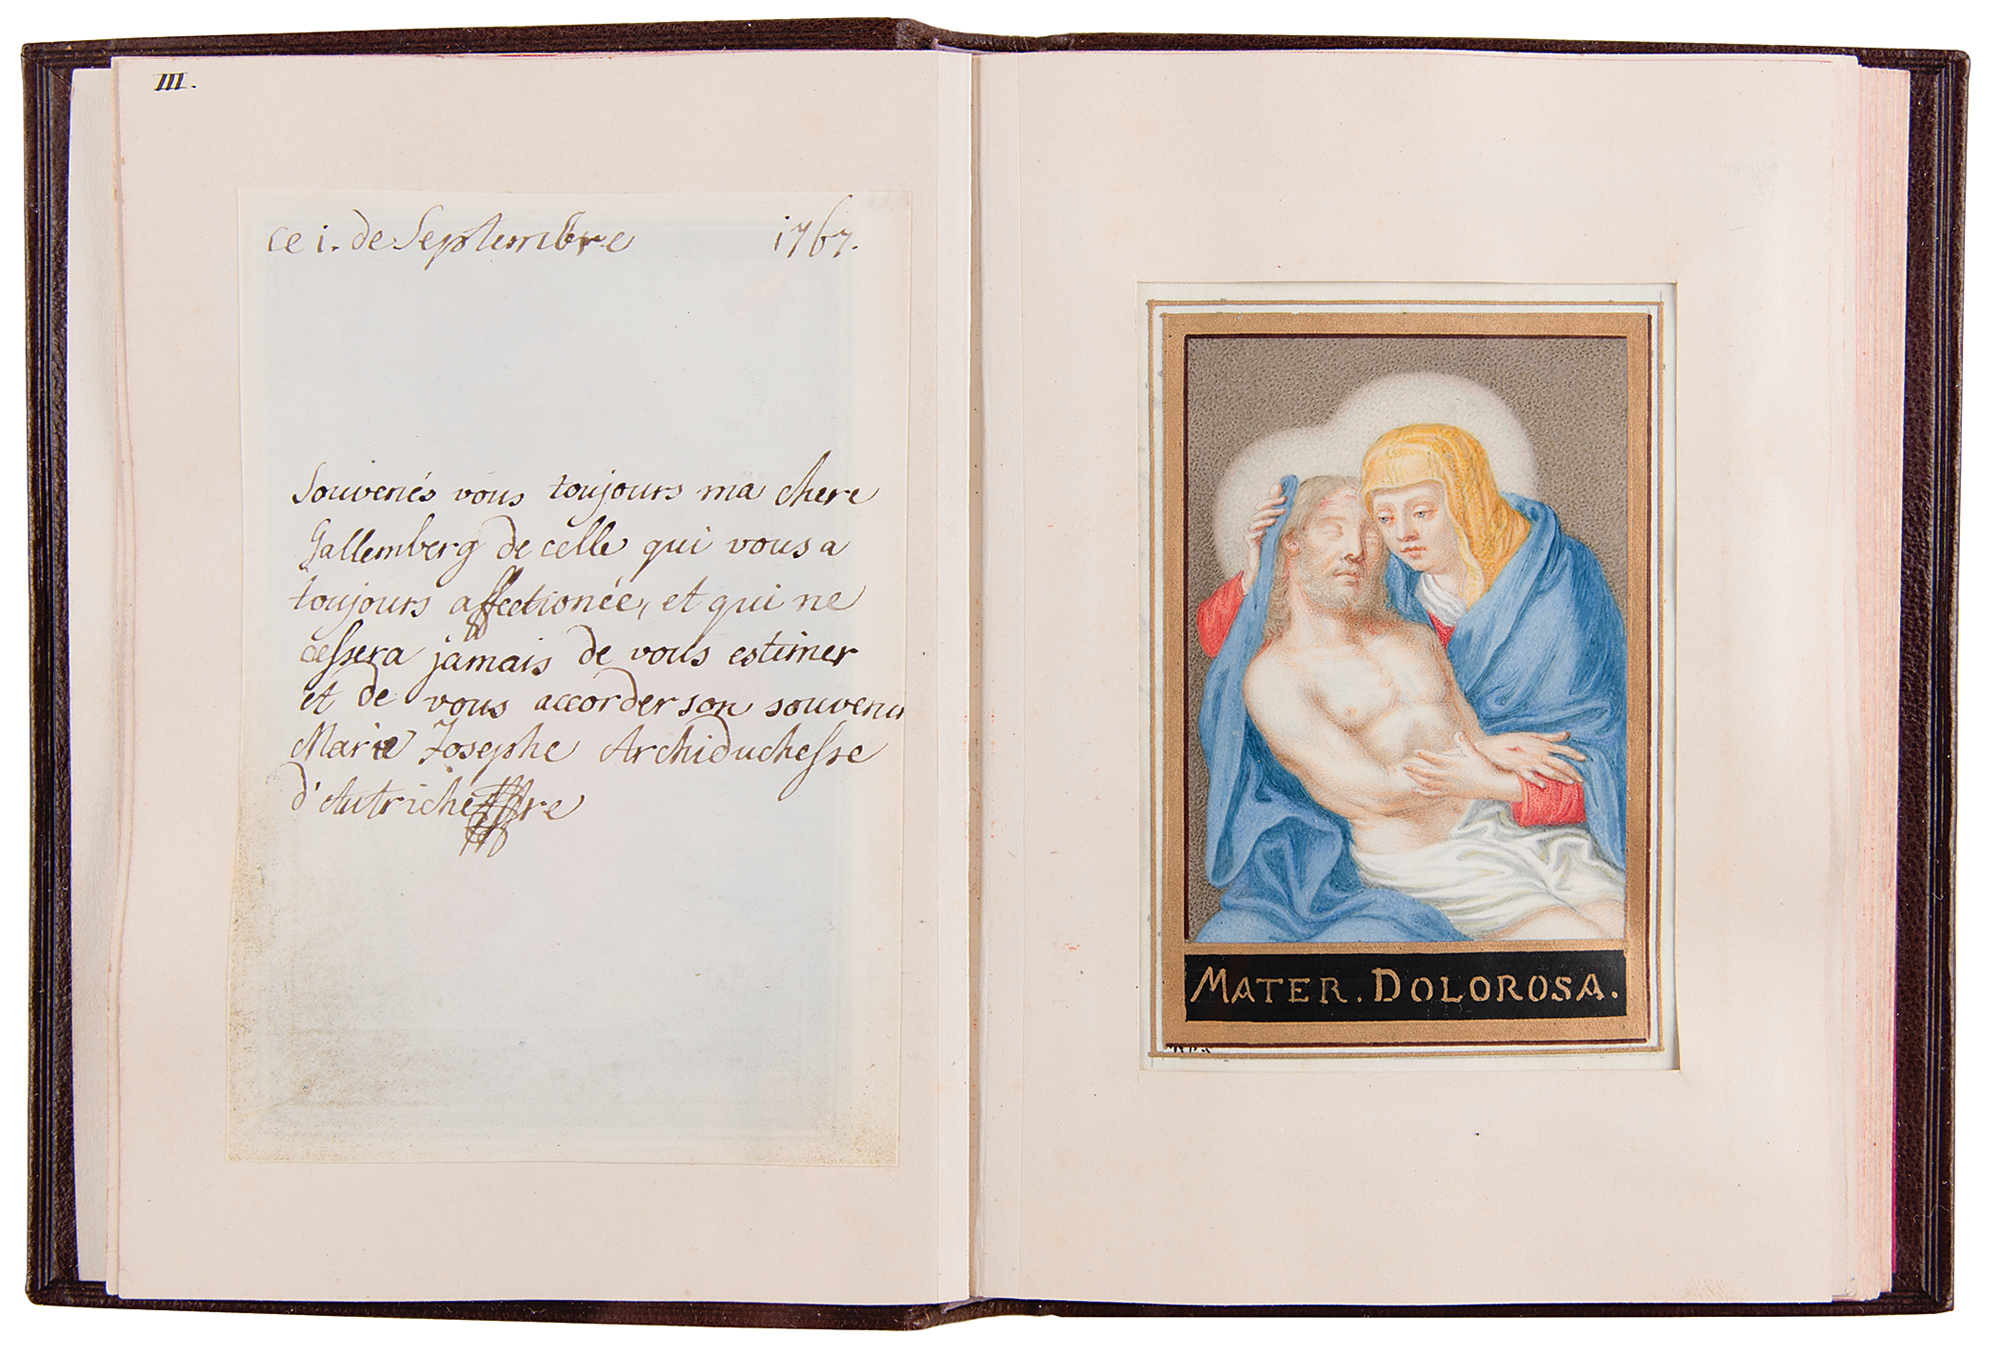 III.
ce 1. de Septembre 1767.
Souvenés vous toujours ma chere
Gallemberg de celle qui vous a
toujours affectionée, et qui ne
cessera jamais de vous estimer
et de vous accorder son souvenir
Marie Josephe Archiduchesse
d'Autriche
MATER. DOLOROSA.